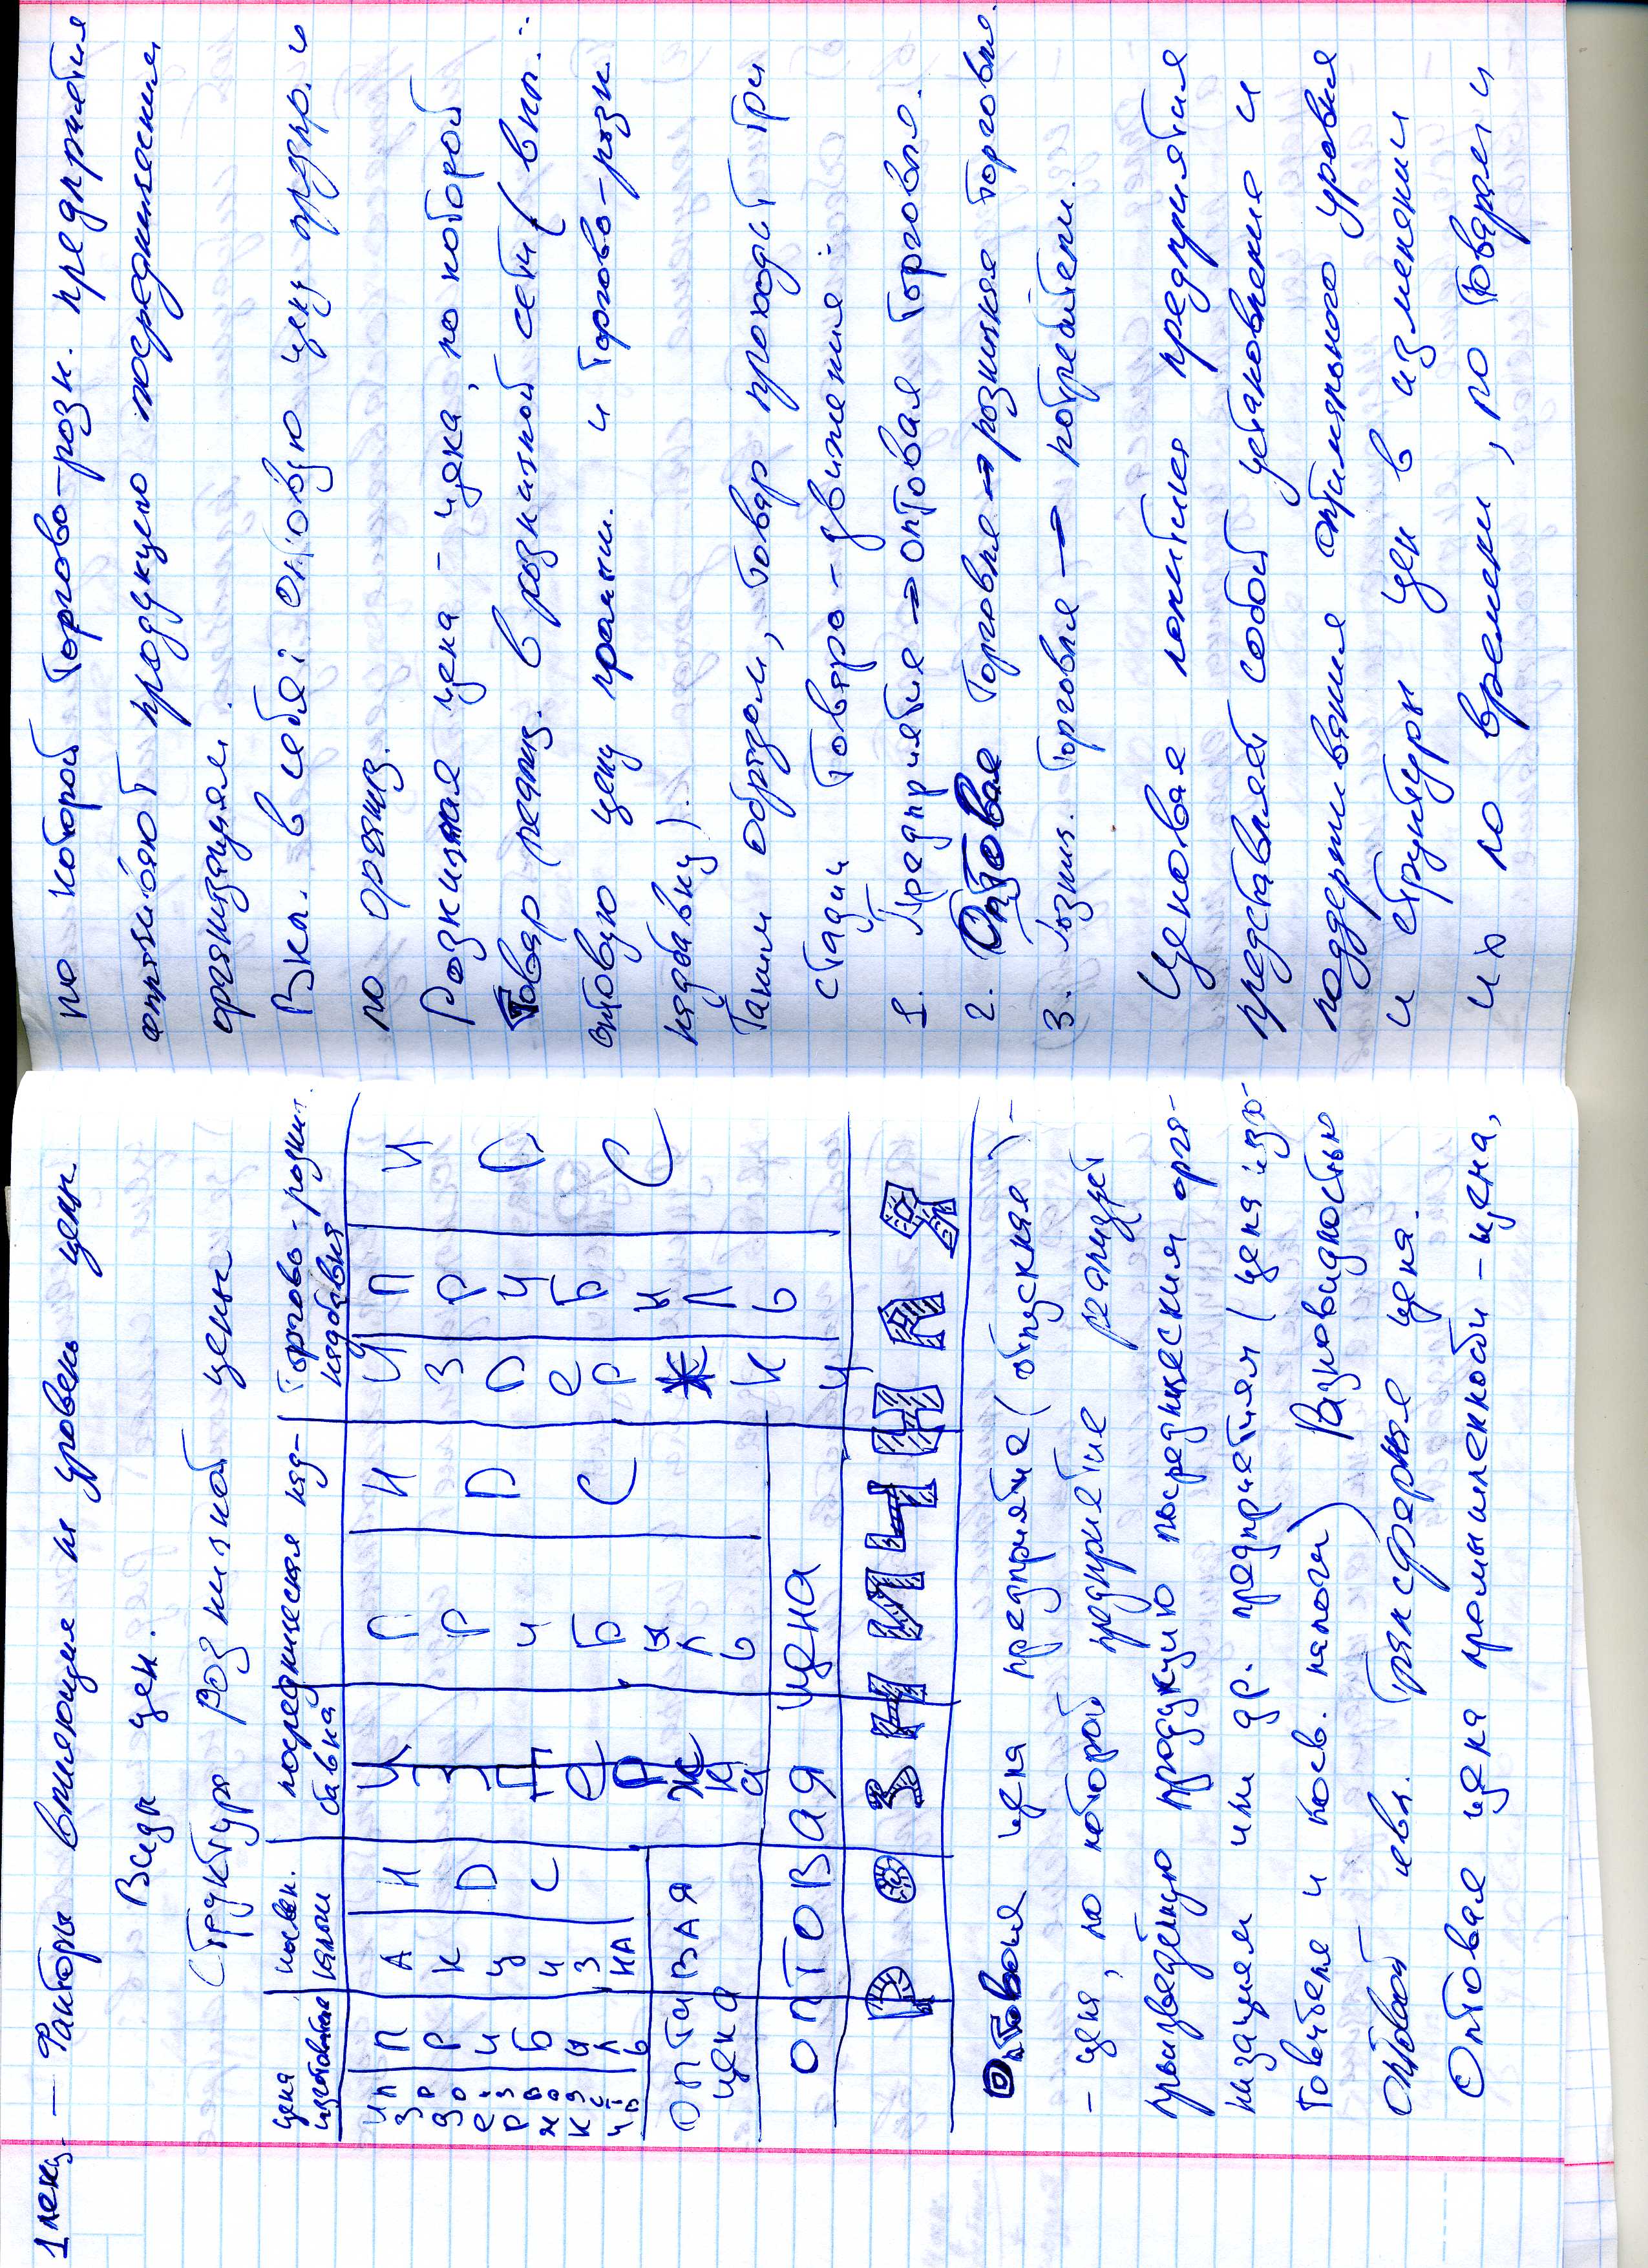 1 лекц. — Факторы влияющия на уровень цен.
Виды цен.
Структура розничной цены
цена изготовителя
косвен. налоги
посредническая надбавка
торгово-розничн. надбавка
издержки производства
ПРИБЫЛЬ
АКЦИЗНА
НДС
Издержка
ПРИБЫЛЬ
НДС
Издержки
ПРИБЫЛЬ
НДС
Оптавая цена
ОПТОВАЯ цена
РОЗНИЧНАЯ
Оптовая цена предприятие (отпускная) –
– цена, по которой предприятие реализует
произведённую продукцию посредническим орга-
низациям или др. предприятиям (цена изго-
товителя и косв. налоги) Разновидностью
оптовой явл. трансферная цена.
Оптовая цена промышленности – цена,
по которой торгово-розн. предприятия
оптачивают продукцию посредническим
организациям.
Вкл. в себя: оптовую цену предпр. и
по организ.
Розничная цена – цена, по которой
товар реализ. в розничной сети (вкл.:
оптовую цену промыш. и торгово-розн.
надбавку).
Таким образом, товар проходит три
стадии товаро-движения:
1. Предприятие → оптовая торговля.
2. Оптовая торговля → розничная торговля.
3. Рознич. торговля → потребители.
Ценовая политика предприятия
представляет собой установление и
поддерживания оптимального уровня
и структуры цен в изменении
их по времени, по товарам и